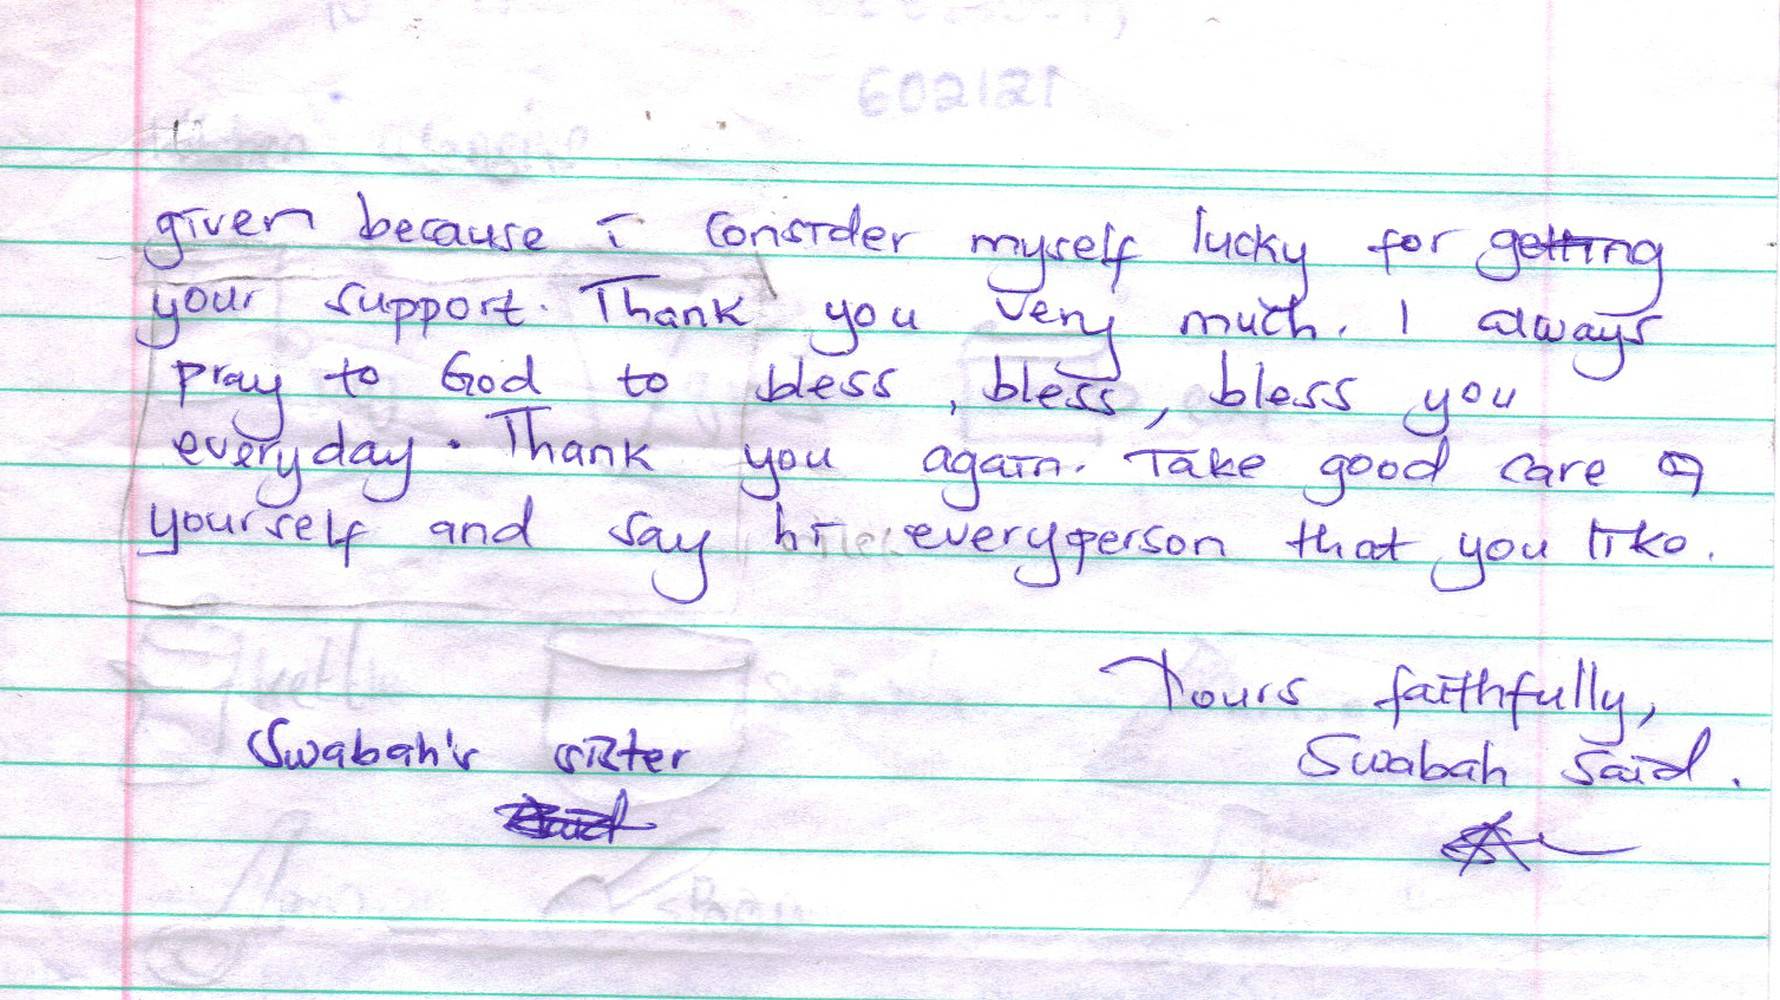 given because i consider myself lucky for getting
your support. Thank you very much. I always
pray to God to bless, bless, bless you
everyday. Thank you again. Take good care of
yourself and say hi everyperson that you like.
Yours faithfully,
Swabah's sister
Swabah Said.